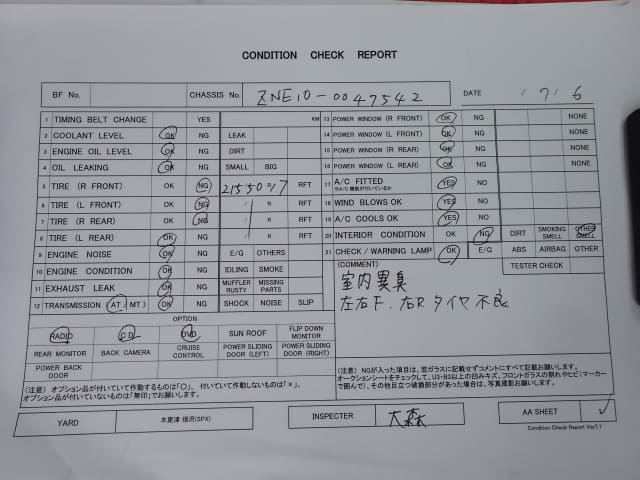 CONDITION CHECK REPORT
BF No. CHASSIS No. ZNE10-0047542 DATE 1 7 / 6
1 TIMING BELT CHANGE YES KM
2 COOLANT LEVEL OK NG LEAK
3 ENGINE OIL LEVEL OK NG DIRT
4 OIL LEAKING OK NG SMALL BIG
5 TIRE (R FRONT) OK NG 215 50 / 17 RFT
6 TIRE (L FRONT) OK NG / R RFT
7 TIRE (R REAR) OK NG / R RFT
8 TIRE (L REAR) OK NG / R RFT
9 ENGINE NOISE OK NG E/G OTHERS
10 ENGINE CONDITION OK NG IDLING SMOKE
11 EXHAUST LEAK OK NG MUFFLER RUSTY MISSING PARTS
12 TRANSMISSION (AT / MT) OK NG SHOCK NOISE SLIP
13 POWER WINDOW (R FRONT) OK NG NONE
14 POWER WINDOW (L FRONT) OK NG NONE
15 POWER WINDOW (R REAR) OK NG NONE
16 POWER WINDOW (L REAR) OK NG NONE
17 A/C FITTED YES NO
※A/C機能が付いているか
18 WIND BLOWS OK YES NO
19 A/C COOLS OK YES NO
20 INTERIOR CONDITION OK NG DIRT SMOKING SMELL OTHER SMELL
21 CHECK/WARNING LAMP OK E/G ABS AIRBAG OTHER
(COMMENT) TESTER CHECK
室内異臭
左右F. 右R タイヤ不良
OPTION
RADIO CD DVD SUN ROOF FLIP DOWN MONITOR
REAR MONITOR BACK CAMERA CRUISE CONTROL POWER SLIDING DOOR (LEFT) POWER SLIDING DOOR (RIGHT)
POWER BACK DOOR
(注意) オプション品が付いていて作動するものは「○」、付いていて作動しないものは「×」、
オプション品が付いていないものは「無印」でお願いします。
(注意) NGが入った項目は、窓ガラスに記載せずコメントにすべて記載お願いします。
オークションシートをチェックして、U3・B3以上の凹みキズ、フロントガラスの割れやヒビ(マーカー
で囲んで)、その他目立つ破損部分があった場合は、写真撮影お願いします。
YARD 木更津 畑沢(SPX) INSPECTER 大森 AA SHEET ✓
Condition Check Report Ver7.1